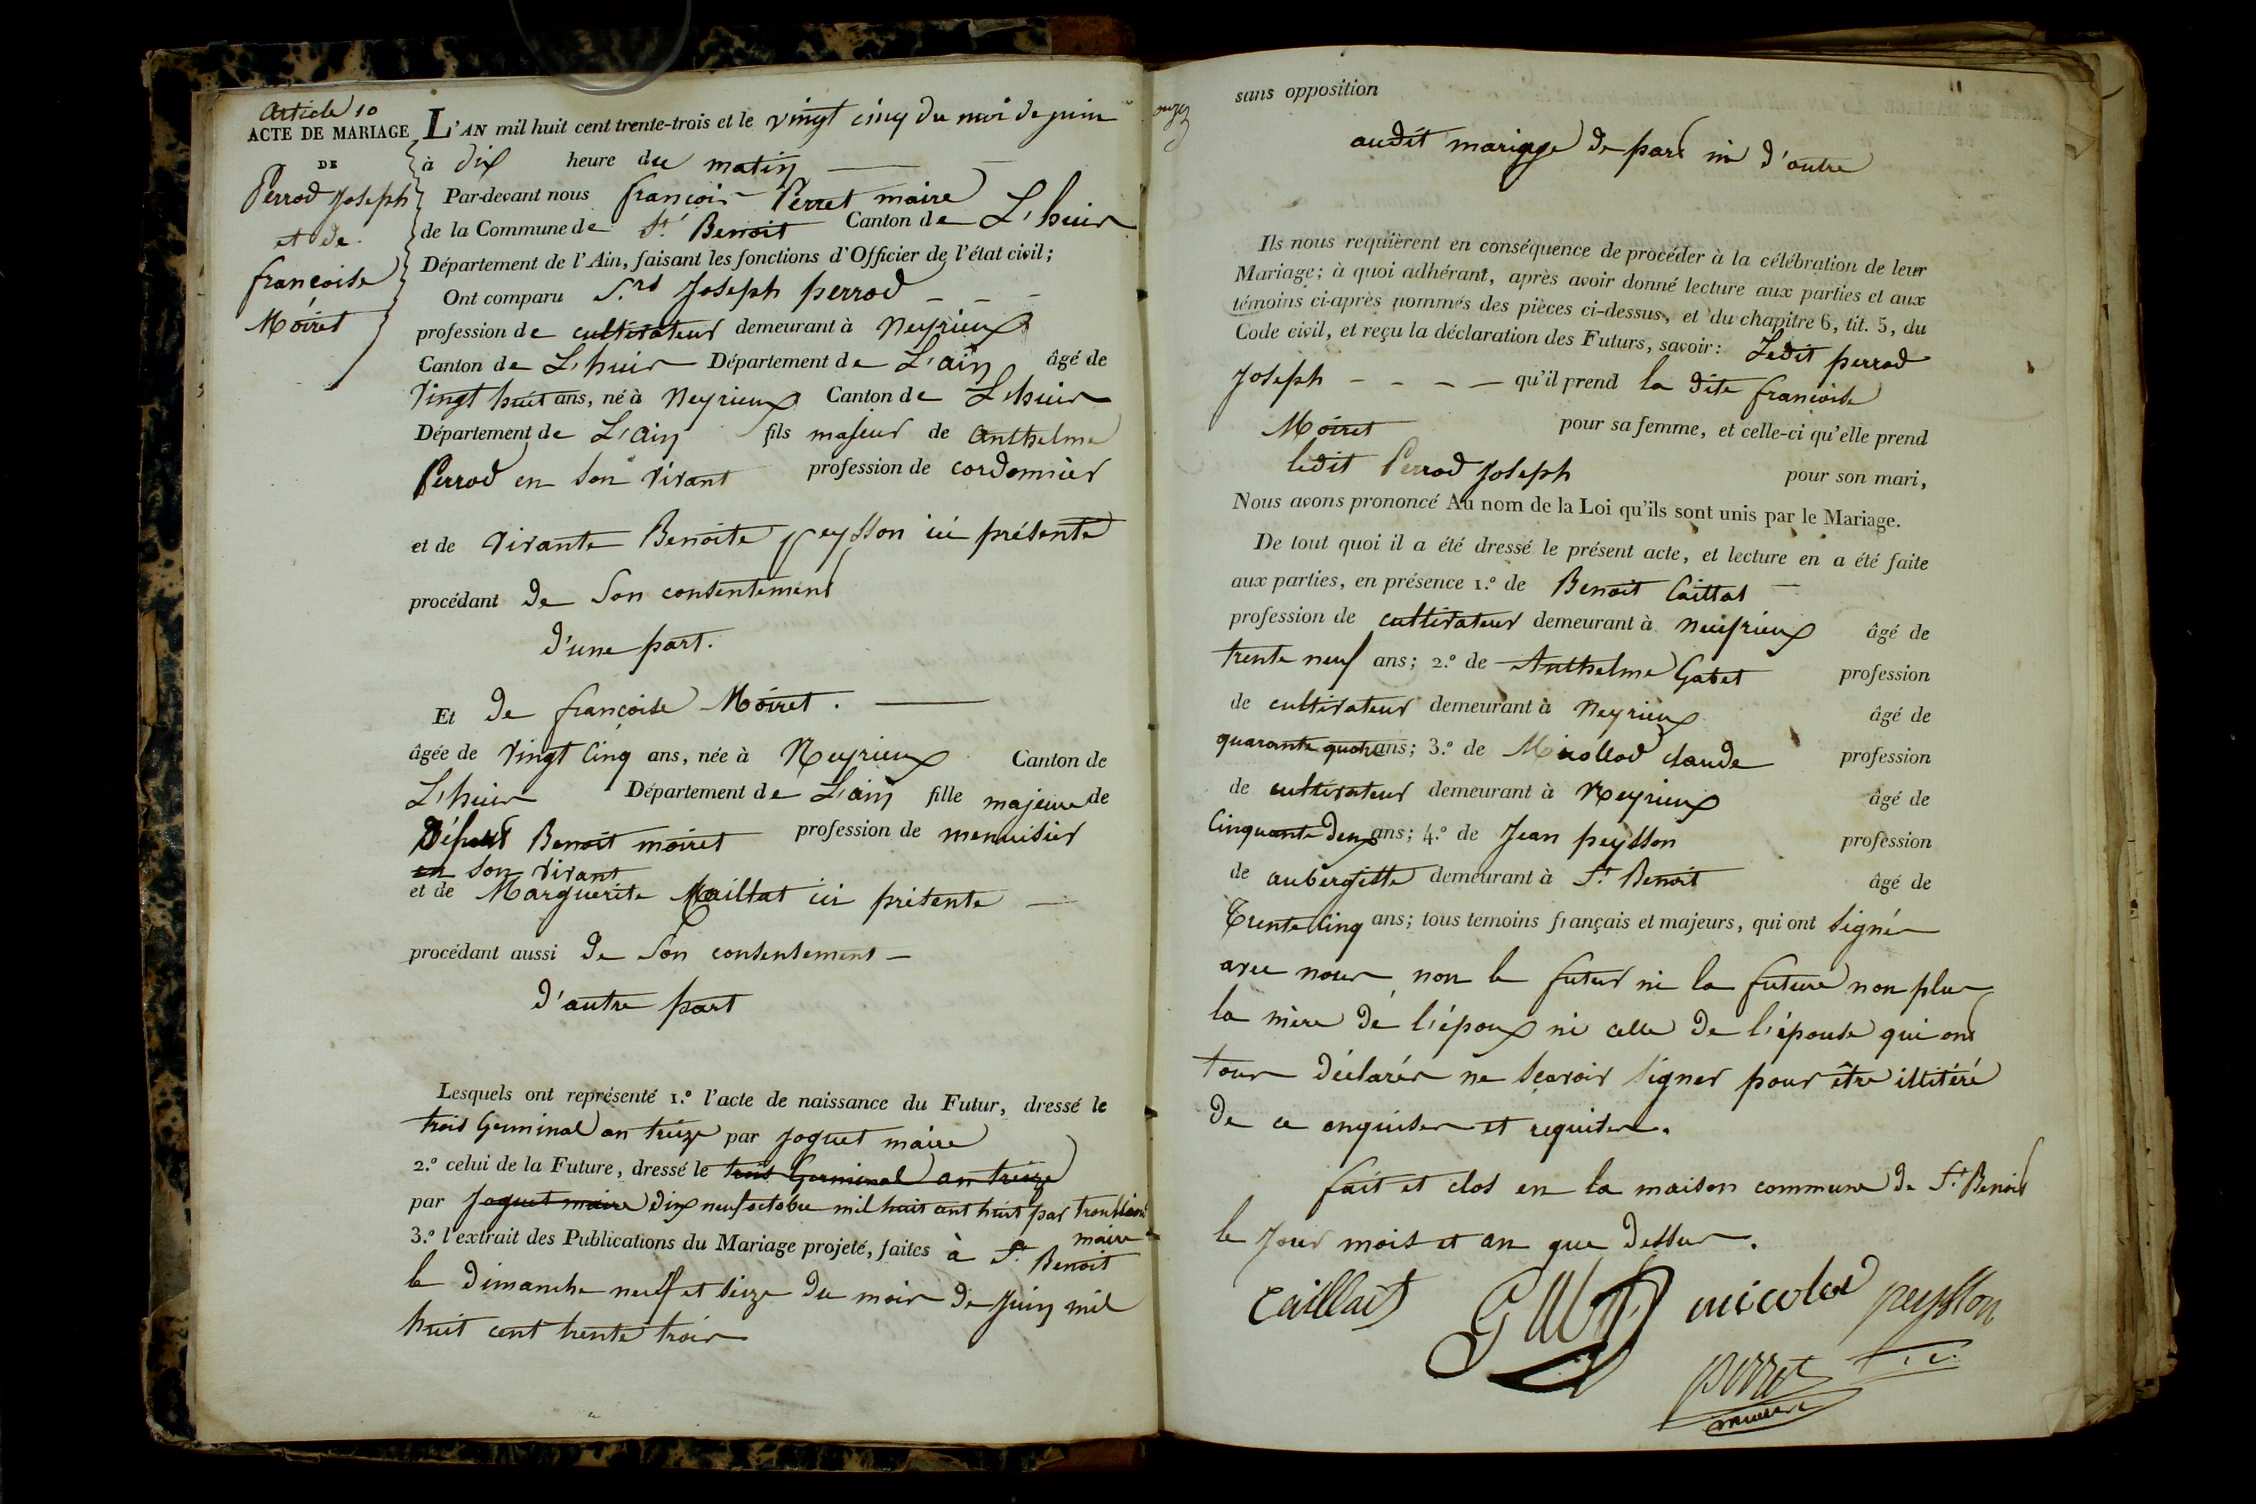 Article 10
ACTE DE MARIAGE
DE
Perrod Joseph
et de
françoise
Moiret
L'AN mil huit cent trente-trois et le vingt cinq du moi de juin
à dix heure du matin
Par-devant nous françois Perret maire
de la Commune de St Benoit Canton de L'huis
Département de l'Ain, faisant les fonctions d'Officier de l'état civil;
Ont comparu S.rd Joseph perrod
profession de cultivateur demeurant à Neyrieux
Canton de L'huis Département de L'ain âgé de
vingt huit ans, né à Neyrieux Canton de L'huis
Département de L'Ain fils majeur de Anthelme
Perrod en son vivant profession de cordonnier
et de vivante Benoite peysson ici présente
procédant de son consentement
d'une part.
Et de françoise Moiret.
âgée de vingt cinq ans, née à Neyrieux Canton de
L'huis Département de L'ain fille majeure de
Benoit moiret profession de menuisier
en son vivant
et de Marguerite Caillat ici présente
procédant aussi de son consentement
d'autre part
Lesquels ont représenté 1.º l'acte de naissance du Futur, dressé le
trois Germinal an treize par joguet maire
2.º celui de la Future, dressé le trois Germinal an treize
par Joguet maire dix neuf octobre mil huit cent huit par
maire
3.º l'extrait des Publications du Mariage projeté, faites à St Benoit
le dimanche neuf et seize du mois de juin mil
huit cent trente trois
sans opposition
audit mariage de part ni d'autre
Ils nous requièrent en conséquence de procéder à la célébration de leur
Mariage; à quoi adhérant, après avoir donné lecture aux parties et aux
témoins ci-après nommés des pièces ci-dessus, et du chapitre 6, tit. 5, du
Code civil, et reçu la déclaration des Futurs, savoir: Ledit perrod
Joseph qu'il prend la dite francoise
Moiret pour sa femme, et celle-ci qu'elle prend
ledit Perrod Joseph pour son mari,
Nous avons prononcé Au nom de la Loi qu'ils sont unis par le Mariage.
De tout quoi il a été dressé le présent acte, et lecture en a été faite
aux parties, en présence 1.º de Benoit Caillat
profession de cultivateur demeurant à neuyrieux âgé de
trente neuf ans; 2.º de Anthelme Gabet profession
de cultivateur demeurant à Neyrieux âgé de
quarante quatre ans; 3.º de claude profession
de cultivateur demeurant à Neyrieux âgé de
Cinquante deux ans; 4.º de Jean peysson profession
de aubergiste demeurant à St Benoit âgé de
Trente cinq ans; tous temoins français et majeurs, qui ont signés
avec nous non le futur ni la future non plus
la mère de l'époux ni celle de l'épouse qui ont
tous déclarés ne sçavoir signer pour être illitéré
de ce enquises et requises.
fait et clos en la maison commune de St Benoit
le jour mois et an que dessus.
Caillat nicolod peysson
perret
maire